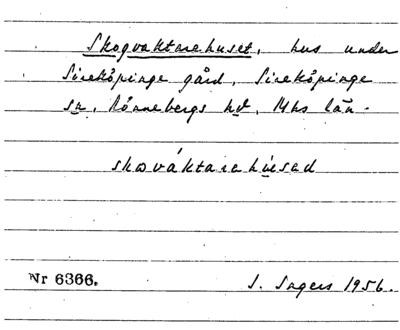 Skogvaktarehuset, hus under
Sireköpinge gård, Sireköpinge
sn, Rönnebergs hd, Mhs län.
skɷváktarehúsad
Nr 6366.
S. Sagers 1956.